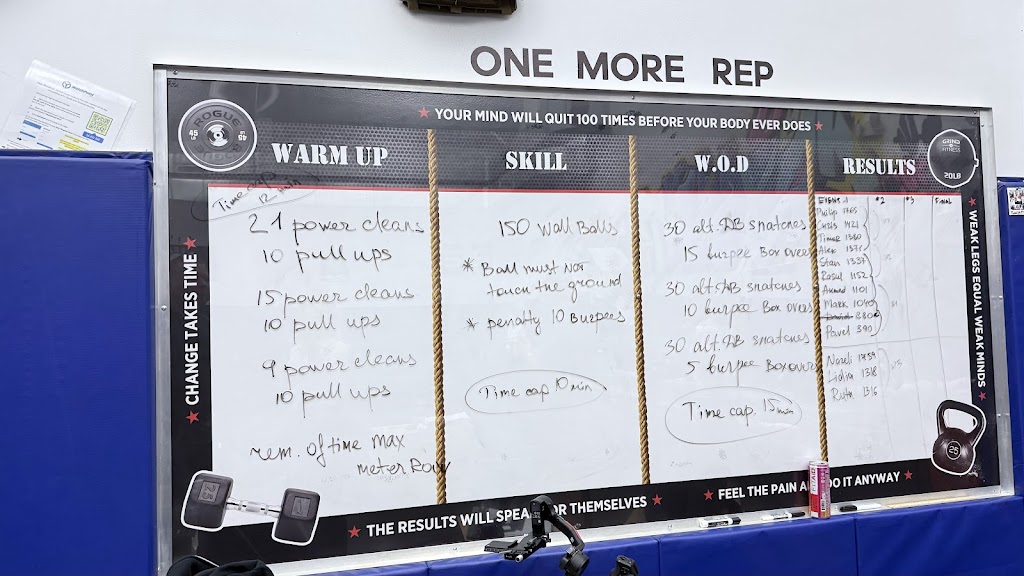 ONE MORE REP
★ YOUR MIND WILL QUIT 100 TIMES BEFORE YOUR BODY EVER DOES ★
ROGUE
45
WARM UP
Time cap
12 min
21 power cleans
10 pull ups
15 power cleans
10 pull ups
9 power cleans
10 pull ups
rem. of time max
meter Row
SKILL
150 Wall Balls
* Ball must Not
touch the ground
* penalty 10 Burpees
Time cap 10 min
W.O.D
30 alt. DB snatches
15 burpee Box overs
30 alt. DB snatches
10 burpee Box overs
30 alt. DB snatches
5 burpee Box over
Time cap. 15 min
RESULTS
GRIND
FITNESS
20LB
EVENT 1 #2 #3 FINAL
Philip 1765
Chris 1421
Timur 1380
Alex 1371
Stan 1337
Rasul 1152
Ahmad 1101
Mark 1040
880
Pavel 390
Nazeli 1759
Lidiia 1318
Ruth 1316
★ CHANGE TAKES TIME ★
★ WEAK LEGS EQUAL WEAK MINDS ★
★ THE RESULTS WILL SPEAK FOR THEMSELVES ★
★ FEEL THE PAIN AND DO IT ANYWAY ★